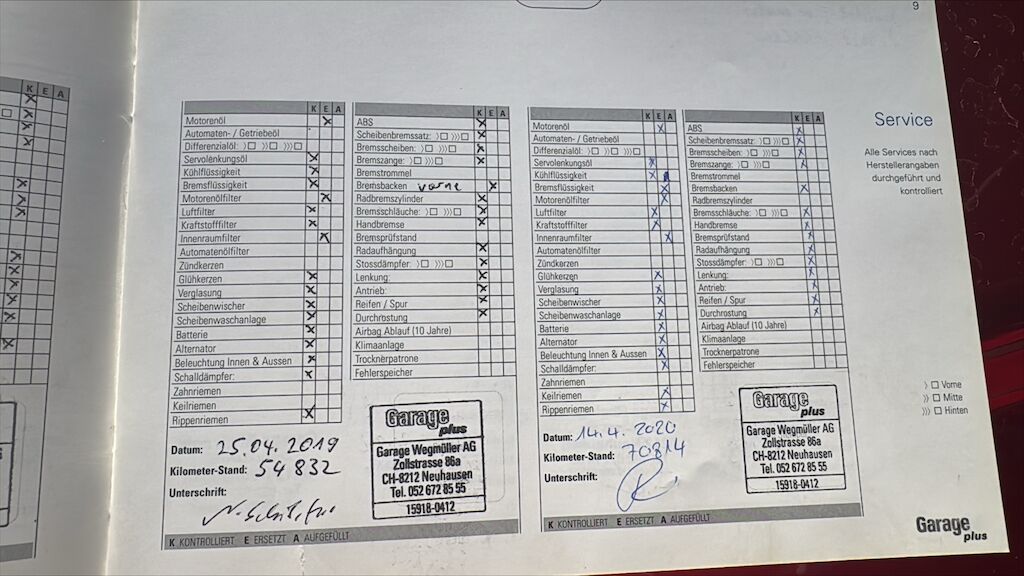 9
K E A
K E A
Motorenöl
Automaten- / Getriebeöl
Differenzialöl: 〉□ 〉〉□ 〉〉〉□
Servolenkungsöl
Kühlflüssigkeit
Bremsflüssigkeit
Motorenölfilter
Luftfilter
Kraftstofffilter
Innenraumfilter
Automatenölfilter
Zündkerzen
Glühkerzen
Verglasung
Scheibenwischer
Scheibenwaschanlage
Batterie
Alternator
Beleuchtung Innen & Aussen
Schalldämpfer:
Zahnriemen
Keilriemen
Rippenriemen
K E A
ABS
Scheibenbremssatz: 〉□ 〉〉〉□
Bremsscheiben: 〉□ 〉〉〉□
Bremszange: 〉□ 〉〉〉□
Bremstrommel
Bremsbacken vorne
Radbremszylinder
Bremsschläuche: 〉□ 〉〉〉□
Handbremse
Bremsprüfstand
Radaufhängung
Stossdämpfer: 〉□ 〉〉〉□
Lenkung:
Antrieb:
Reifen / Spur
Durchrostung
Airbag Ablauf (10 Jahre)
Klimaanlage
Trocknerpatrone
Fehlerspeicher
Datum: 25.04.2019
Kilometer-Stand: 54 832
Unterschrift:
Garage
plus
Garage Wegmüller AG
Zollstrasse 86a
CH-8212 Neuhausen
Tel. 052 672 85 55
15918-0412
K KONTROLLIERT E ERSETZT A AUFGEFÜLLT
K E A
Motorenöl
Automaten- / Getriebeöl
Differenzialöl: 〉□ 〉〉□ 〉〉〉□
Servolenkungsöl
Kühlflüssigkeit
Bremsflüssigkeit
Motorenölfilter
Luftfilter
Kraftstofffilter
Innenraumfilter
Automatenölfilter
Zündkerzen
Glühkerzen
Verglasung
Scheibenwischer
Scheibenwaschanlage
Batterie
Alternator
Beleuchtung Innen & Aussen
Schalldämpfer:
Zahnriemen
Keilriemen
Rippenriemen
K E A
ABS
Scheibenbremssatz: 〉□ 〉〉〉□
Bremsscheiben: 〉□ 〉〉〉□
Bremszange: 〉□ 〉〉〉□
Bremstrommel
Bremsbacken
Radbremszylinder
Bremsschläuche: 〉□ 〉〉〉□
Handbremse
Bremsprüfstand
Radaufhängung
Stossdämpfer: 〉□ 〉〉〉□
Lenkung:
Antrieb:
Reifen / Spur
Durchrostung
Airbag Ablauf (10 Jahre)
Klimaanlage
Trocknerpatrone
Fehlerspeicher
Datum: 14.4.2020
Kilometer-Stand: 70814
Unterschrift:
Garage
plus
Garage Wegmüller AG
Zollstrasse 86a
CH-8212 Neuhausen
Tel. 052 672 85 55
15918-0412
K KONTROLLIERT E ERSETZT A AUFGEFÜLLT
Service
Alle Services nach
Herstellerangaben
durchgeführt und
kontrolliert
〉 □ Vorne
〉〉 □ Mitte
〉〉〉 □ Hinten
Garage
plus